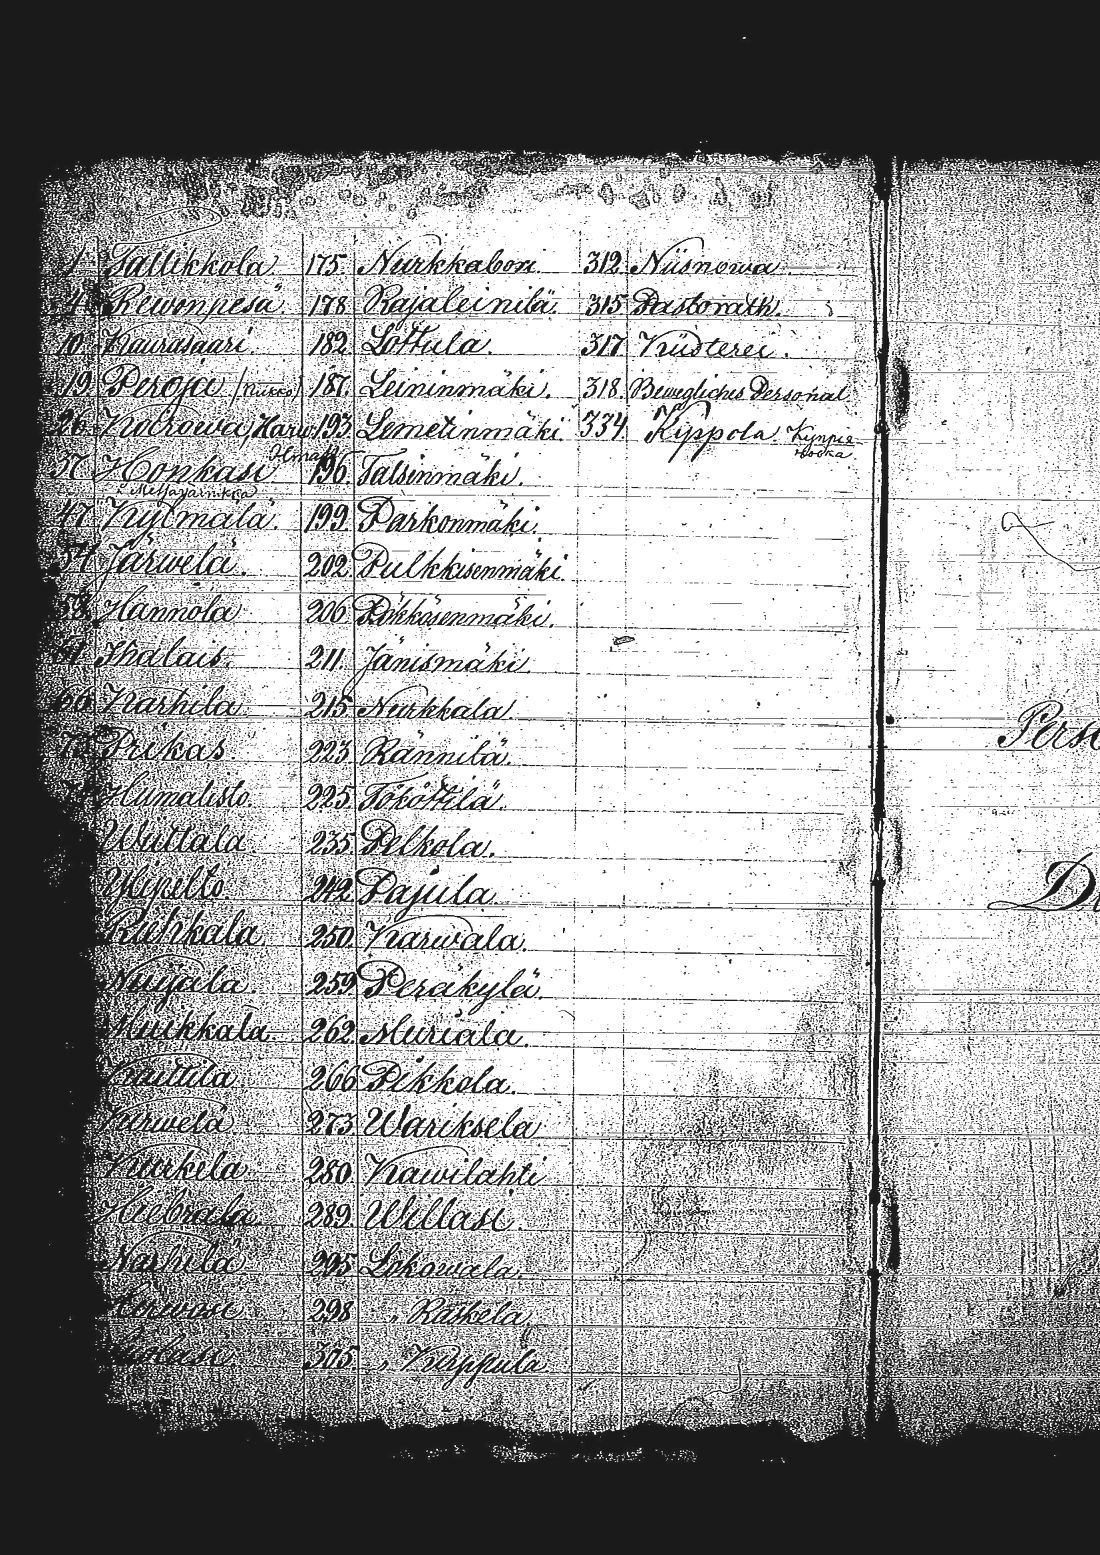 1. Tattikkola. 175 Nurkkabori. 312. Niisnowa.
4. Rewonpesä. 178 Rajaleinilä. 315 Pastorath.
10. Kaurasaari. 182 Lottula. 317 Küsterei.
19. Peroja (Kirkko) 187. Leininmäki. 318. Bewegliches Personal
26. Koirowa, 193 Lemetinmäki 334 Kippola.
37. Honkasi 196. Tatsinmäki.
47. Kylmälä. 199. Parkonmäki.
54 Järwelä. 202 Pulkkisenmäki.
58. Hannola 206 Rökkösenmäki.
Kidlais. 211. Jänismäki.
66. Karhila. 215 Nurkkala.
Prikas. 223. Rännilä.
Humalisto. 225 Tököttilä.
Wiittala 235 Pilkola.
Ylipelto 242. Pajula.
250. Karwala.
Nuijala. 259 Peräkylä.
Muikkala. 262. Muriala.
266 Pikkola.
Järwelä 273 Wariksela
Kurkela. 280. Kawilahti
289. Willasi.
Narhila 295 Lokowala.
298 " Raskela.
305 " Kirppula
Perso